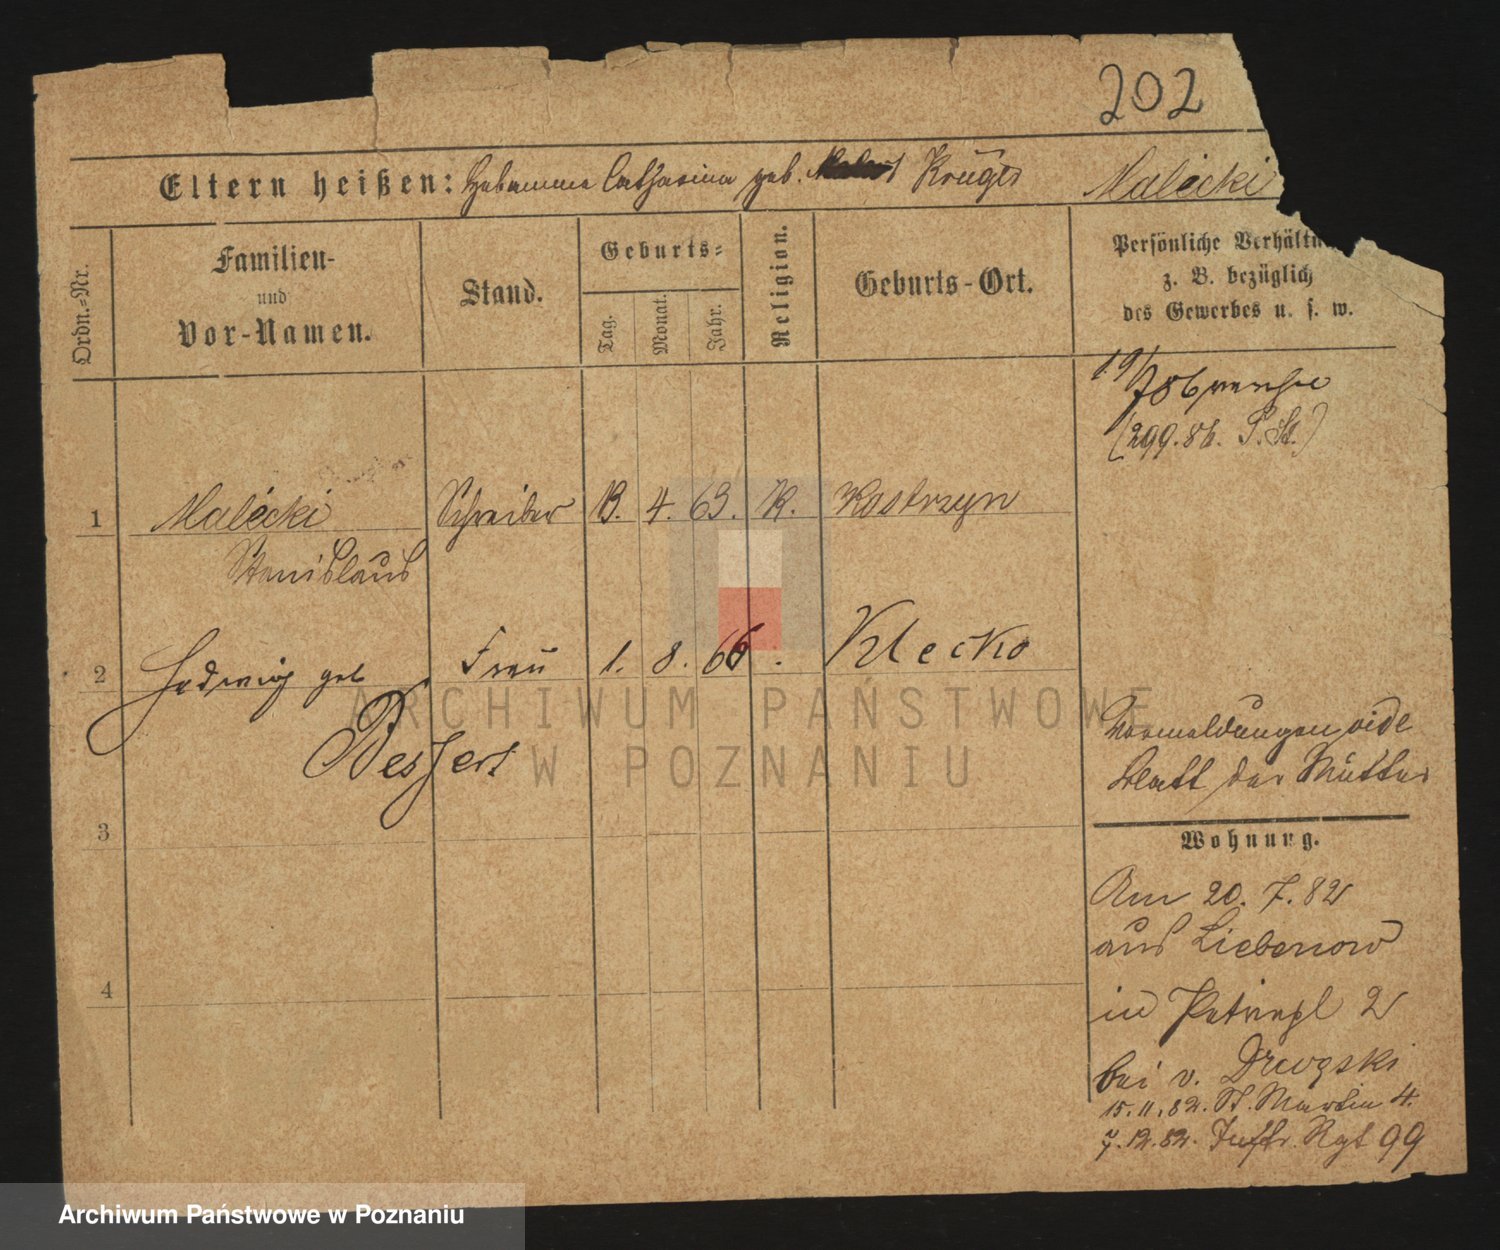 202
Eltern heißen: Hebamme Catharina geb. Krüger Malécki
Ordn.-Nr.
Familien-
und
Vor-Namen.
Stand.
Geburts-
Tag.
Monat.
Jahr.
Religion.
Geburts-Ort.
Persönliche Verhältn
z. B. bezüglich
des Gewerbes u. s. w.
19/7 86
(299.86. P. St.)
1 Malécki Schreiber 13. 4. 63. K. Kostrzyn
Stanislaus
2 Hedwig geb Frau 1. 8. 66. Klecko
Bessert
Vormeldungen vide
Blatt der Mutter
3
Wohnung.
Am 20. 7. 82
aus Liebenow
4
in Petripl 2
bei v.
15.11.82. St. Martin 4.
7.12.82. Inftr. Rgt 99
ARCHIWUM PAŃSTWOWE
W POZNANIU
Archiwum Państwowe w Poznaniu